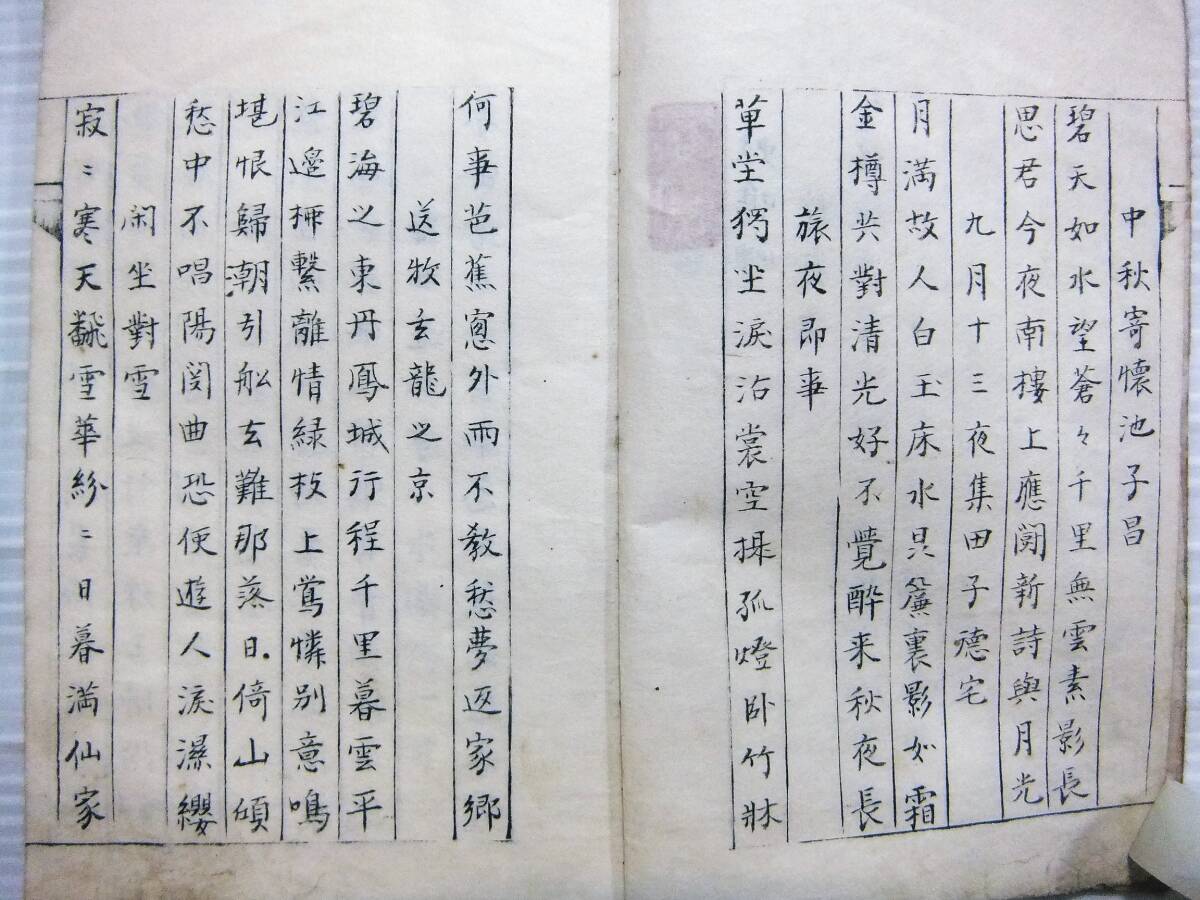 中秋寄懷池子昌
碧天如水望蒼々千里無雲素影長
思君今夜南樓上應闘新詩與月光
九月十三夜集田子德宅
月満故人白玉床水晶簾裏影如霜
金樽共對清光好不覺醉来秋夜長
旅夜即事
草堂獨坐淚沾裳空掑孤燈卧竹牀
何事芭蕉窓外雨不教愁夢返家鄉
送牧玄龍之京
碧海之東丹鳳城行程千里暮雲平
江邉柳繋離情緑枝上鶯憐別意鳴
堪恨歸潮引舩去難那落日倚山傾
愁中不唱陽関曲恐使遊人淚濕纓
閑坐對雪
寂〻寒天飜雪華紛〻日暮満仙家